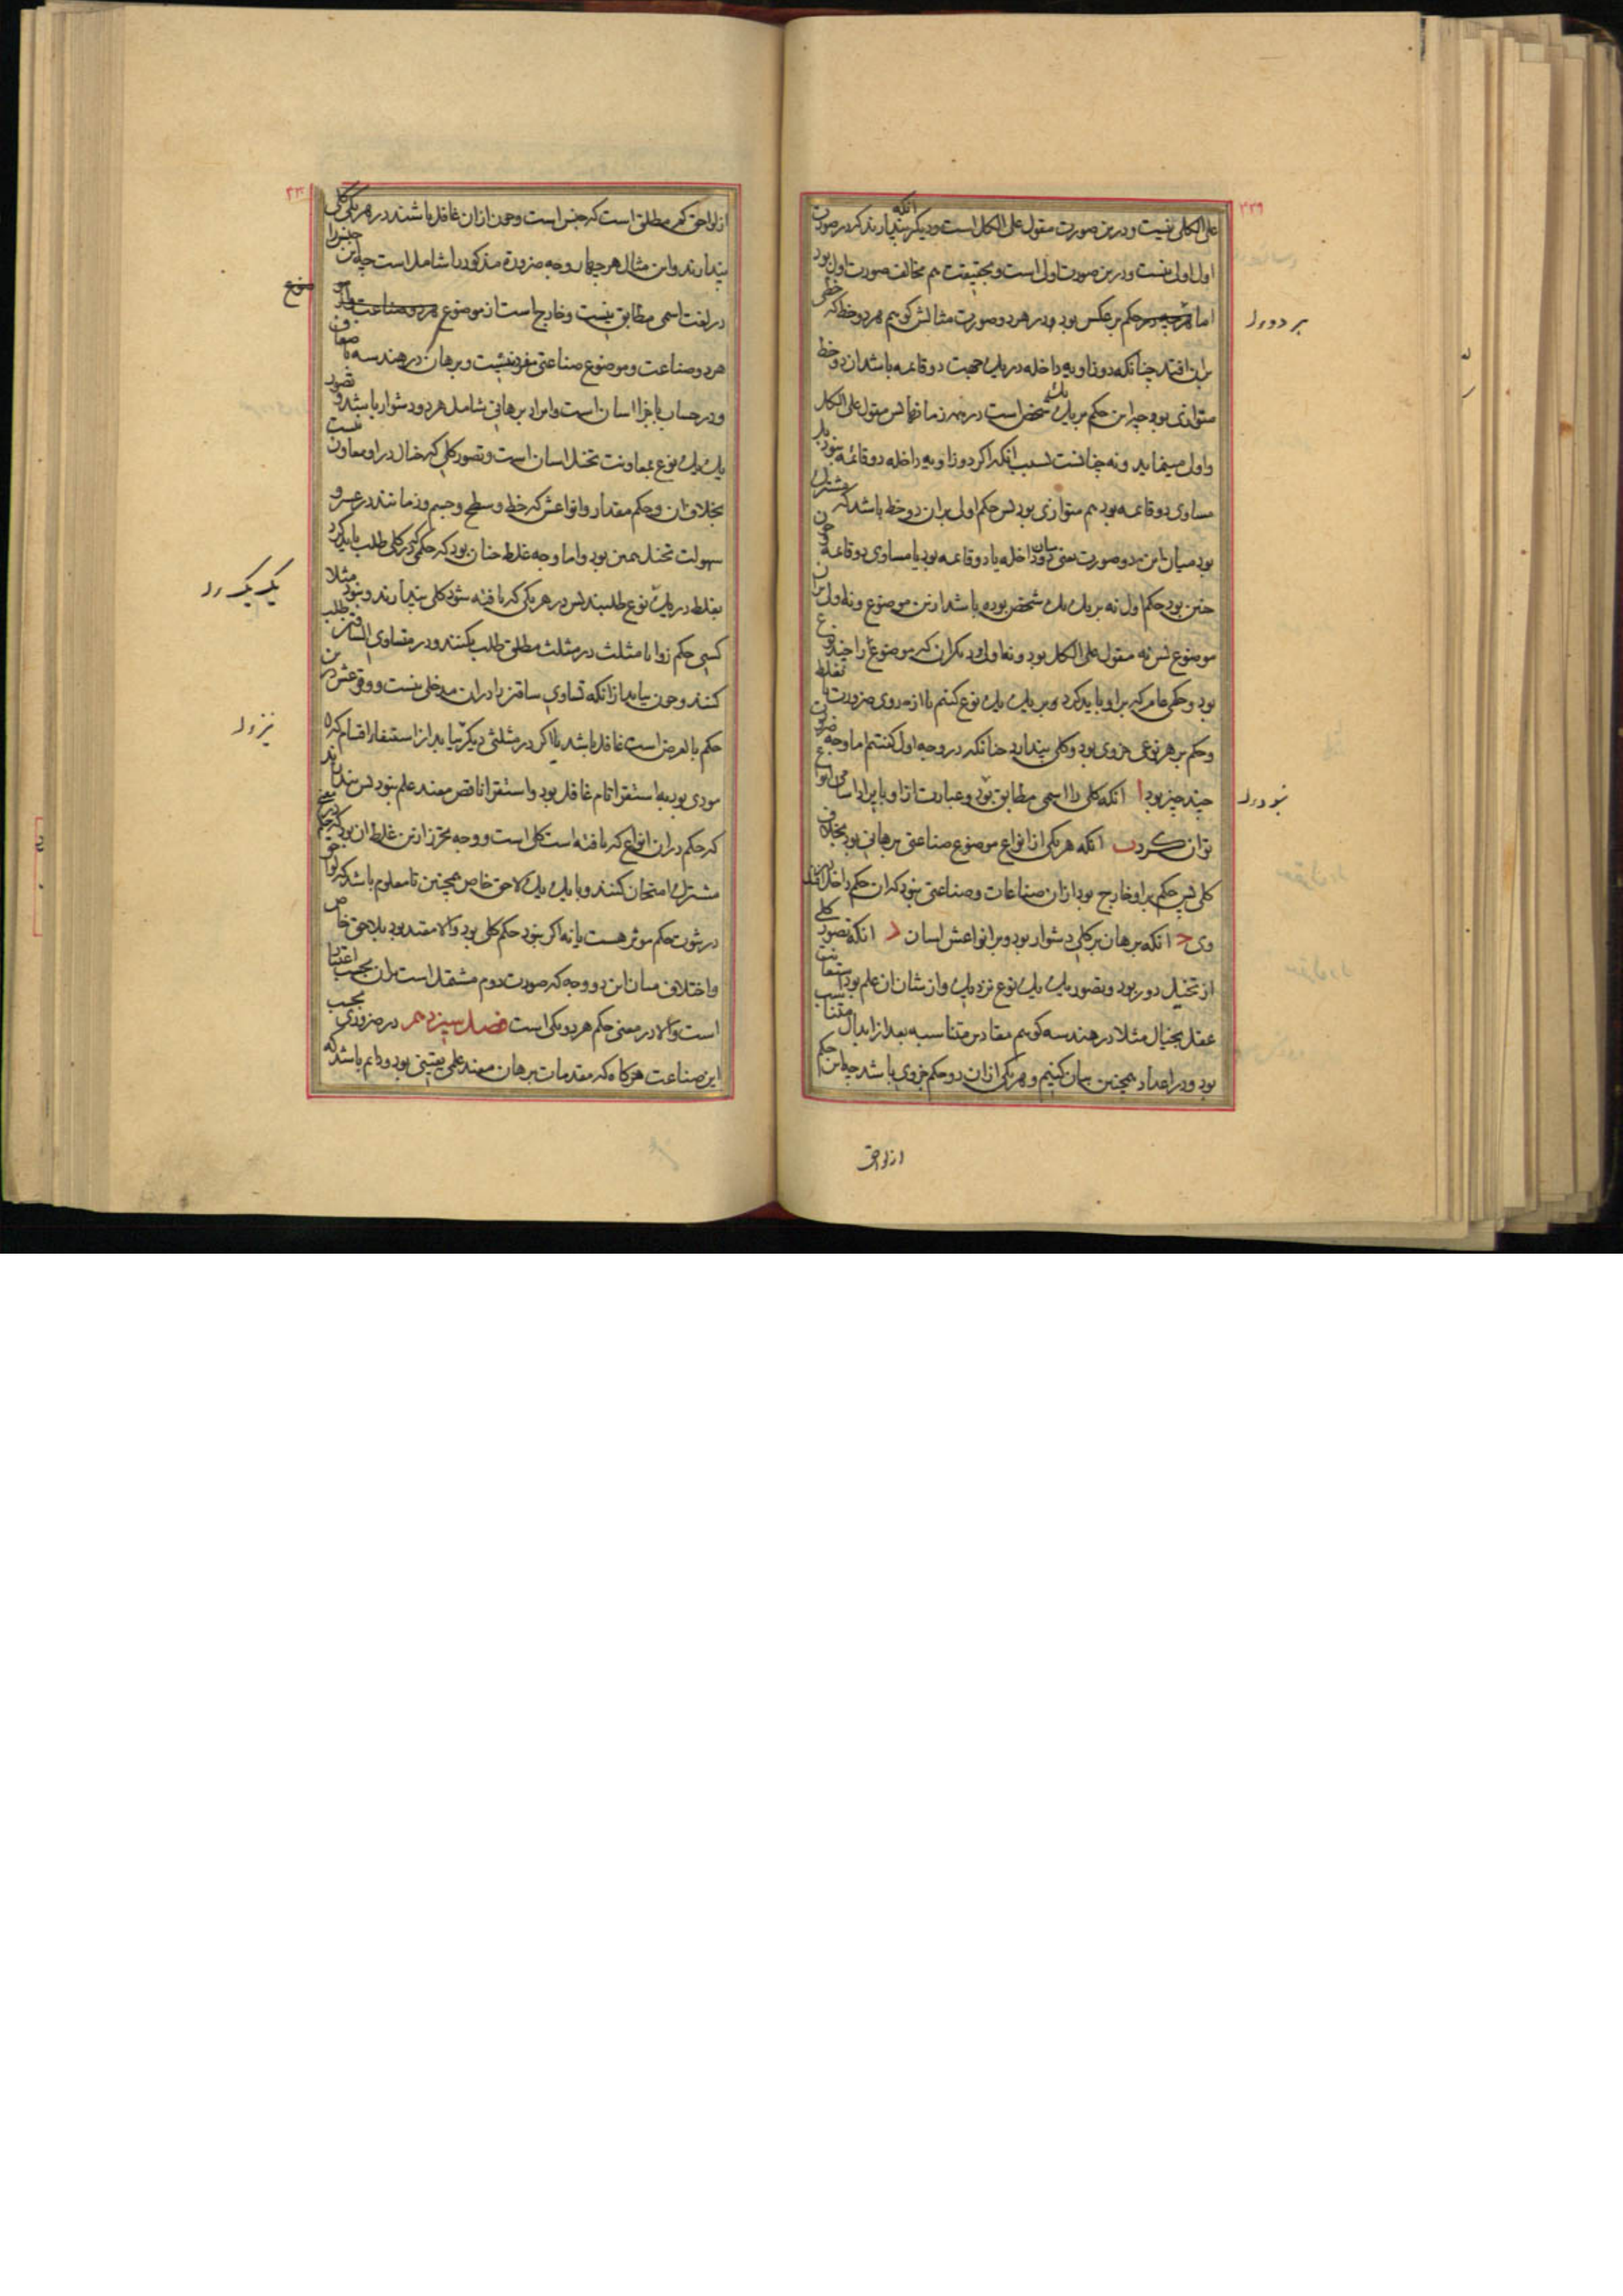 ۲۲۹
علی الکلی نیست و درین صورت مقول علی الکل است و دیگر انکه پندارند که در صورت
اول اولی نیست و درین صورت اولی است و بحقیقت هم مخالف صورت اول بود
اما حکم بر عکس بود و در هر دو صورت مثالش گوییم هر دو خط که خطی
بران افتد چنانکه دو زاویه داخله در یک جهت دو قائمه باشد ان دو خط
متوازی بود چه این حکم بر یک یک شخص است در همه زمانها پس مقول علی الکل
و اول مینماید و نه چنانست بسبب انکه اگر دو زاویه داخله دو قائمه نبود بل
مساوی دو قائمه بود هم متوازی بود پس حکم اولی بران دو خط باشد که مشترک
بود میان این دو صورت یعنی میان دو داخله یا دو قائمه بود یا مساوی دو قائمه چون
چنین بود حکم اول نه بر یک یک شخص بوده باشد ازین موضوع و نه اول بران
موضوع پس نه مقول علی الکل بود و نه اول و دیگر ان که موضوع را چند نوع
بود و حکمی عام که بر او باید کرد و بر یک یک نوع کنیم یا از روی ضرورت یا بغلط
و حکم بر هر نوعی جزوی بود و کلی پندارد چنانکه در وجه اول گفتیم اما وجه ضرورت
چند چیز بود ا انکه کلی را اسمی مطابق نبود و عبارت ازو بایراد اسامی انواع
توان کرد ب انکه هر یکی از انواع موضوع صناعتی برهانی بود بخلاف
کلی پس حکم بر او خارج بود از ان صناعات و صناعتی نبود که ان حکم داخل باشد در
وی ج انکه برهان بر کلی دشوار بود و بر انواعش اسان د انکه تصور کلی
از تخیل دور بود و تصور یک یک نوع نزدیک و از شان ان علم بود استعانت
عقل بخیال مثلا در هندسه گوییم مقادیر متناسبه بعد از ابدال متناسب
بود و در اعداد همچنین بیان کنیم و هر یکی از ان دو حکم جزوی باشد چه این حکم
از لواحق
۲۳۰
از لواحق کم مطلق است که جنس است و چون از ان غافل باشند در هر یکی کلی
پندارند و این مثال هر چهار وجه ضرورة مذکور را شامل است چه این جنس را
در لغت اسمی مطابق نیست و خارج است از موضوع
هر دو صناعت و موضوع صناعتی مفرد نیست و برهان در هندسه
و در حساب باجزا اسان است و ایراد برهانی شامل هر دو دشوار باشد و تصور
یک یک نوع بمعاونت تخیل اسان است و تصور کلی که خیال در او معاون نیست
بخلاف ان و حکم مقدار و انواعش که خط و سطح و جسم و زمانند در عسر و
سهولت تخیل همین بود و اما وجه غلط چنان بود که حکمی که در کلی طلب باید کرد
بغلط در یک نوع طلبند پس در هر یکی که یافته شود کلی پندارند و نبود مثلا
کسی حکم زوایا مثلث در مثلث مطلق طلب نکنند و در متساوی الساقین طلب
کنند و چون بیابد از انکه تساوی ساقین را دران مدخلی نیست و وقوعش درین
حکم بالعرض است غافل باشد یا اگر در مثلثی دیگر بیابد از استیفاء اقسام که
مودی بود به استقراء تام غافل بود و استقراء ناقص مفید علم نبود پس پندارند
که حکم دران انواع که یافته است کلی است و وجه تحرز ازین غلط ان بود که حکم
مشترک را امتحان کنند و با یک یک لاحق خاص همچنین تا معلوم باشد که لواحق
در ثبوت حکم موثر هست یا نه اگر نبود حکم کلی بود و الا مقید بود بلاحق خاص
و اختلاف میان این دو وجه که صورت دوم مشتمل است بران بحسب اعتبار
است و الا در معنی حکم هر دو یکی است فصل سیزدهم در ضروری بحسب
این صناعت هرگاه که مقدمات برهان مفید علمی یقینی بود و دایم باشد که